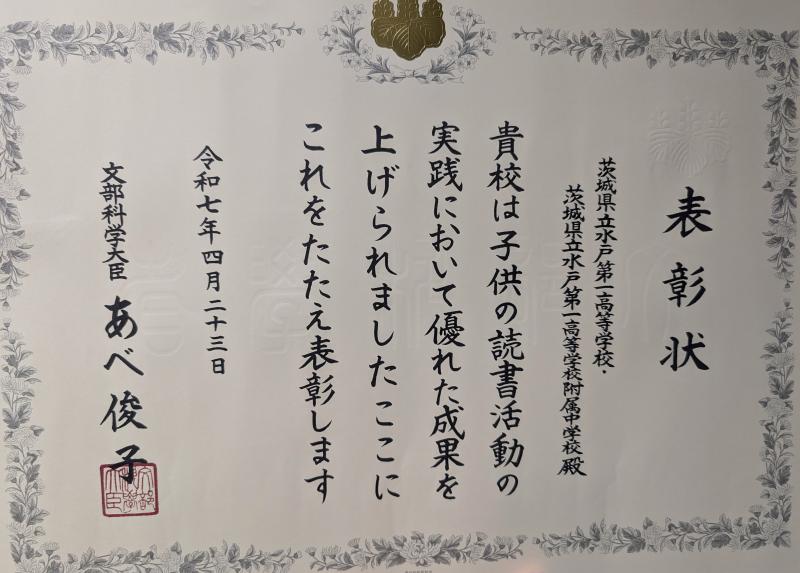 表彰状
茨城県立水戸第一高等学校・
茨城県立水戸第一高等学校附属中学校 殿
貴校は子供の読書活動の
実践において優れた成果を
上げられましたここに
これをたたえ表彰します
令和七年四月二十三日
文部科学大臣 あべ俊子